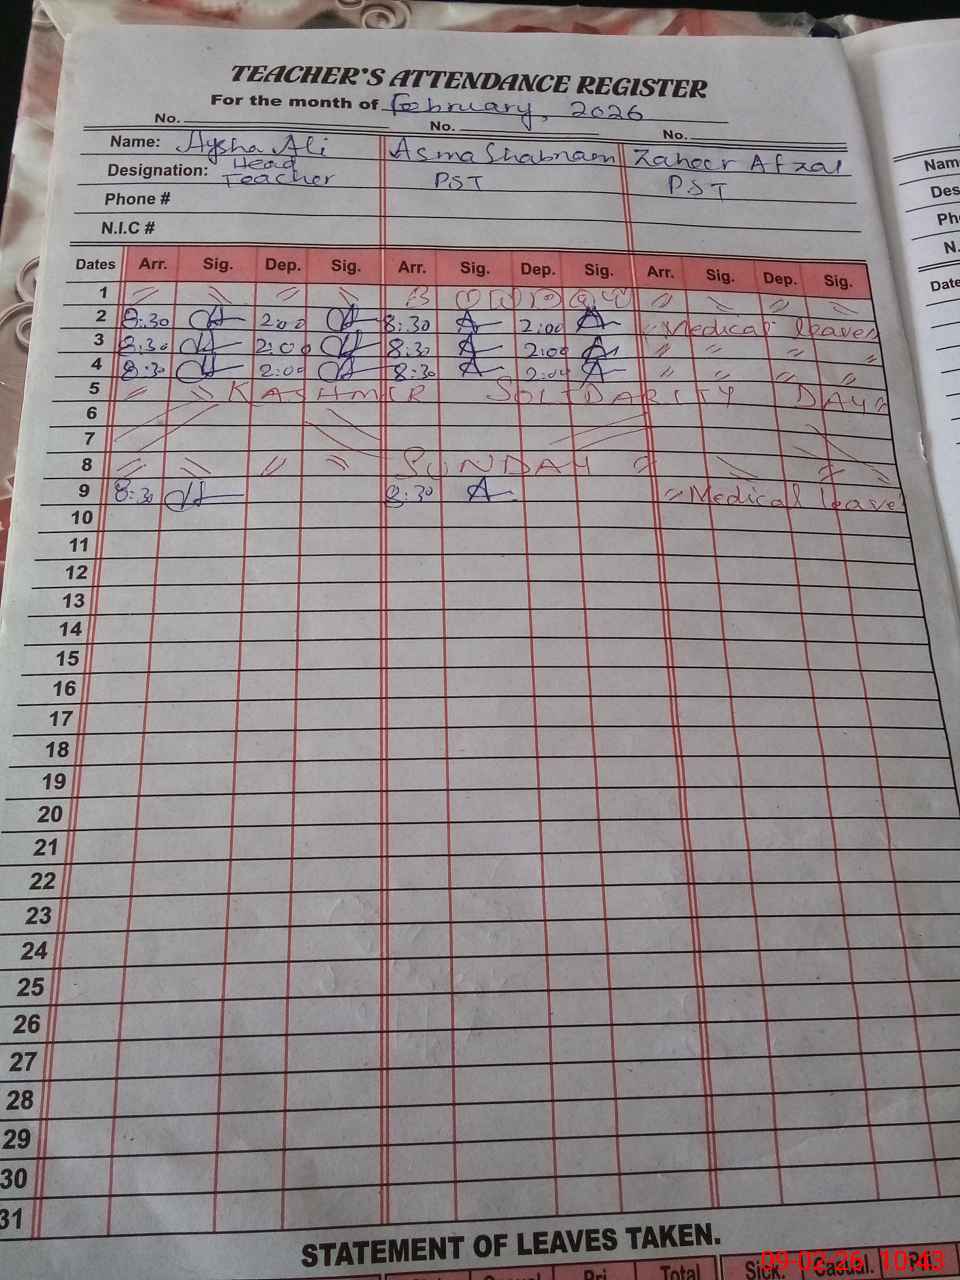 TEACHER'S ATTENDANCE REGISTER
For the month of February, 2026
No. No. No.
Name: Aysha Ali Asma Shabnam Zaheer Afzal
Designation: Head Teacher PST PST
Phone #
N.I.C #
Dates Arr. Sig. Dep. Sig. Arr. Sig. Dep. Sig. Arr. Sig. Dep. Sig.
1 〃 〃 〃 〃 〃 〃 〃 〃
2 8:30 2:00 8:30 A 2:00 A Medical leave
3 8:30 2:00 8:30 A 2:00 A 〃 〃 〃 〃
4 8:30 2:00 8:30 A 2:00 A 〃 〃 〃 〃
5 〃 〃 KASHMIR SOLIDARITY DAY 〃
6
7
8 〃 〃 〃 〃 SUNDAY 〃 〃 〃
9 8:30 8:30 A 〃 Medical leave
10
11
12
13
14
15
16
17
18
19
20
21
22
23
24
25
26
27
28
29
30
31
STATEMENT OF LEAVES TAKEN.
Total Sick. Casual.
09-02-26 10:43
Nam
Des
Ph
N.
Date